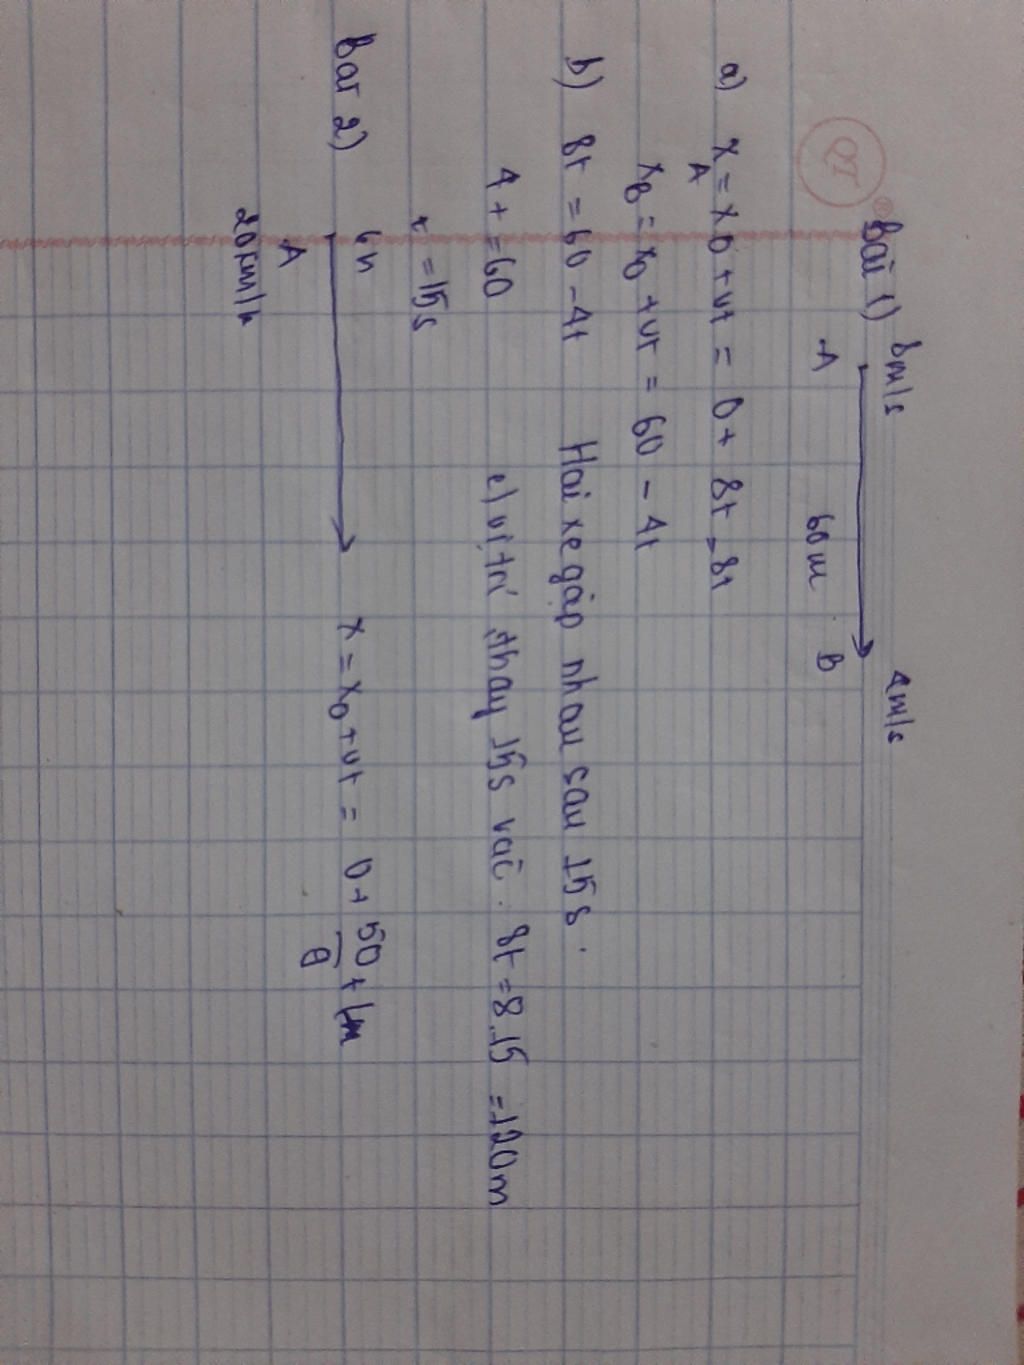 QT
Bài 1) 8m/s 4m/s
A 60m B
a) x_A = x0 + vt = 0 + 8t = 8t
x_B = x0 + vt = 60 - 4t
b) 8t = 60 - 4t Hai xe gặp nhau sau 15s.
4t = 60 c) vị trí thay 15s vào 8t = 8.15 = 120m
t = 15s
Bài 2) 6h x = x0 + vt = 0 + 50/9 t
A
20km/h